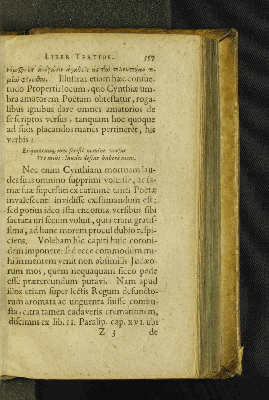 LIBER TERTIUS. 357
Illustrat etiam hæc consue-
tudo Propertii locum, quo Cynthiæ um-
bra amatorem Poetam obtestatur, roga-
libus ignibus daret omnes amatorios de
se scriptos versus, tanquam hoc quoque
ad suos placandos manes pertineret, his
verbis:
Et quoscunque meo fecisti nomine versus
Ure mihi: laudes desine habere meas.
Nec enim Cynthiam mortuam lau-
des suas omnino supprimi voluisse, ac fa-
mæ suæ superstiti ex carmine tanti Poetæ
invalescenti invidisse existimandum est:
sed potius ideo ista encomia versibus sibi
sacrata uri secum voluit, quia erant gratis-
sima, ad hunc morem procul dubio respi-
ciens. Volebam hic capiti huic coroni-
dem imponere: sed ecce commodum mi-
hi in mentem venit non absimilis Judæo-
rum mos, quem nequaquam sicco pede
esse prætereundum putavi. Nam apud
illos etiam super lectis Regum defuncto-
rum aromata ac unguenta fuisse combu-
sta, citra tamen cadaveris cremationem,
discimus ex lib. II. Paralip. cap. XVI. ubi
Z 3 de